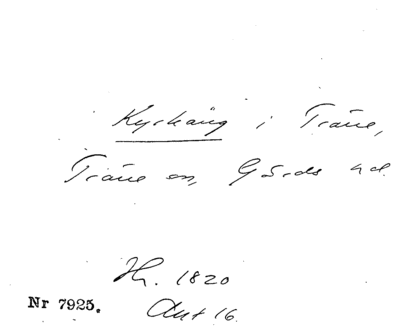 Kyrkäng i Träne,
Träne sn, Gärds hd.
Hr. 1820
Nr 7925.
Akt 16